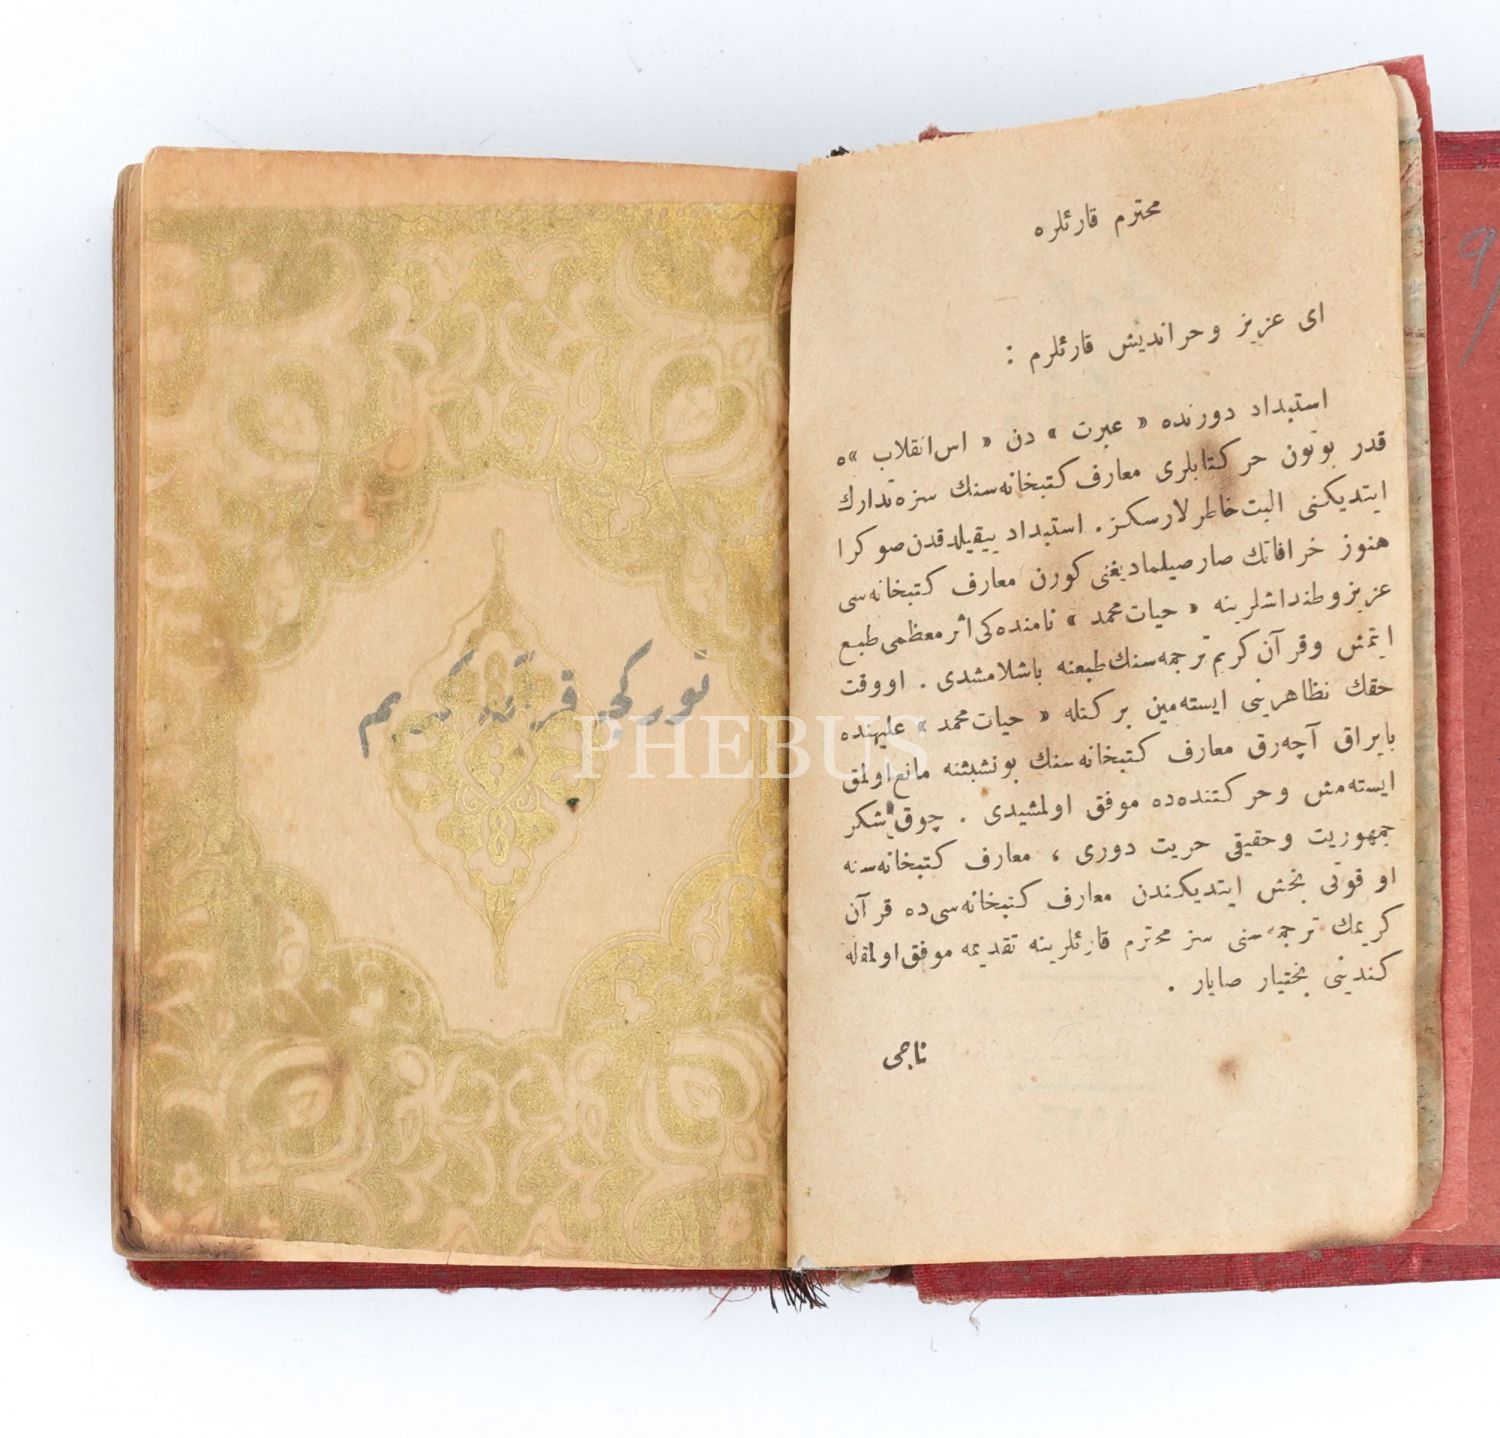 محترم قارئلره
ای عزیز و حر اندیش قارئلرم :
استبداد دورنده « عبرت » دن « اس انقلاب » ه
قدر بوتون حر کتابلری معارف کتبخانه‌سنك سزه تدارك
ایتدیکنی البت خاطرلارسکز . استبداد ییقیلدقدن صوکرا
هنوز خرافاتك صارصیلمادیغنی کورن معارف کتبخانه‌سی
عزیز وطنداشلرینه « حیات محمد » نامنده‌کی اثر معظمی طبع
ایتمش و قرآن کریم ترجمه‌سنك طبعنه باشلامشدی . او وقت
حقك تظاهرینی ایسته‌مین بر کتله « حیات محمد » علیهنده
بایراق آچه‌رق معارف کتبخانه‌سنك بو تشبثنه مانع اولمق
ایسته‌مش و حرکتنده‌ده موفق اولمشیدی . چوق شکر
جمهوریت و حقیقی حریت دوری ، معارف کتبخانه‌سنه
او قوتی بخش ایتدیکندن معارف کتبخانه‌سی ده قرآن
کریمك ترجمه‌سنی سز محترم قارئلرینه تقدیمه موفق اولمقله
کندینی بختیار صایار .
ناجی
تورکجه قرآن کریم
PHEBUS